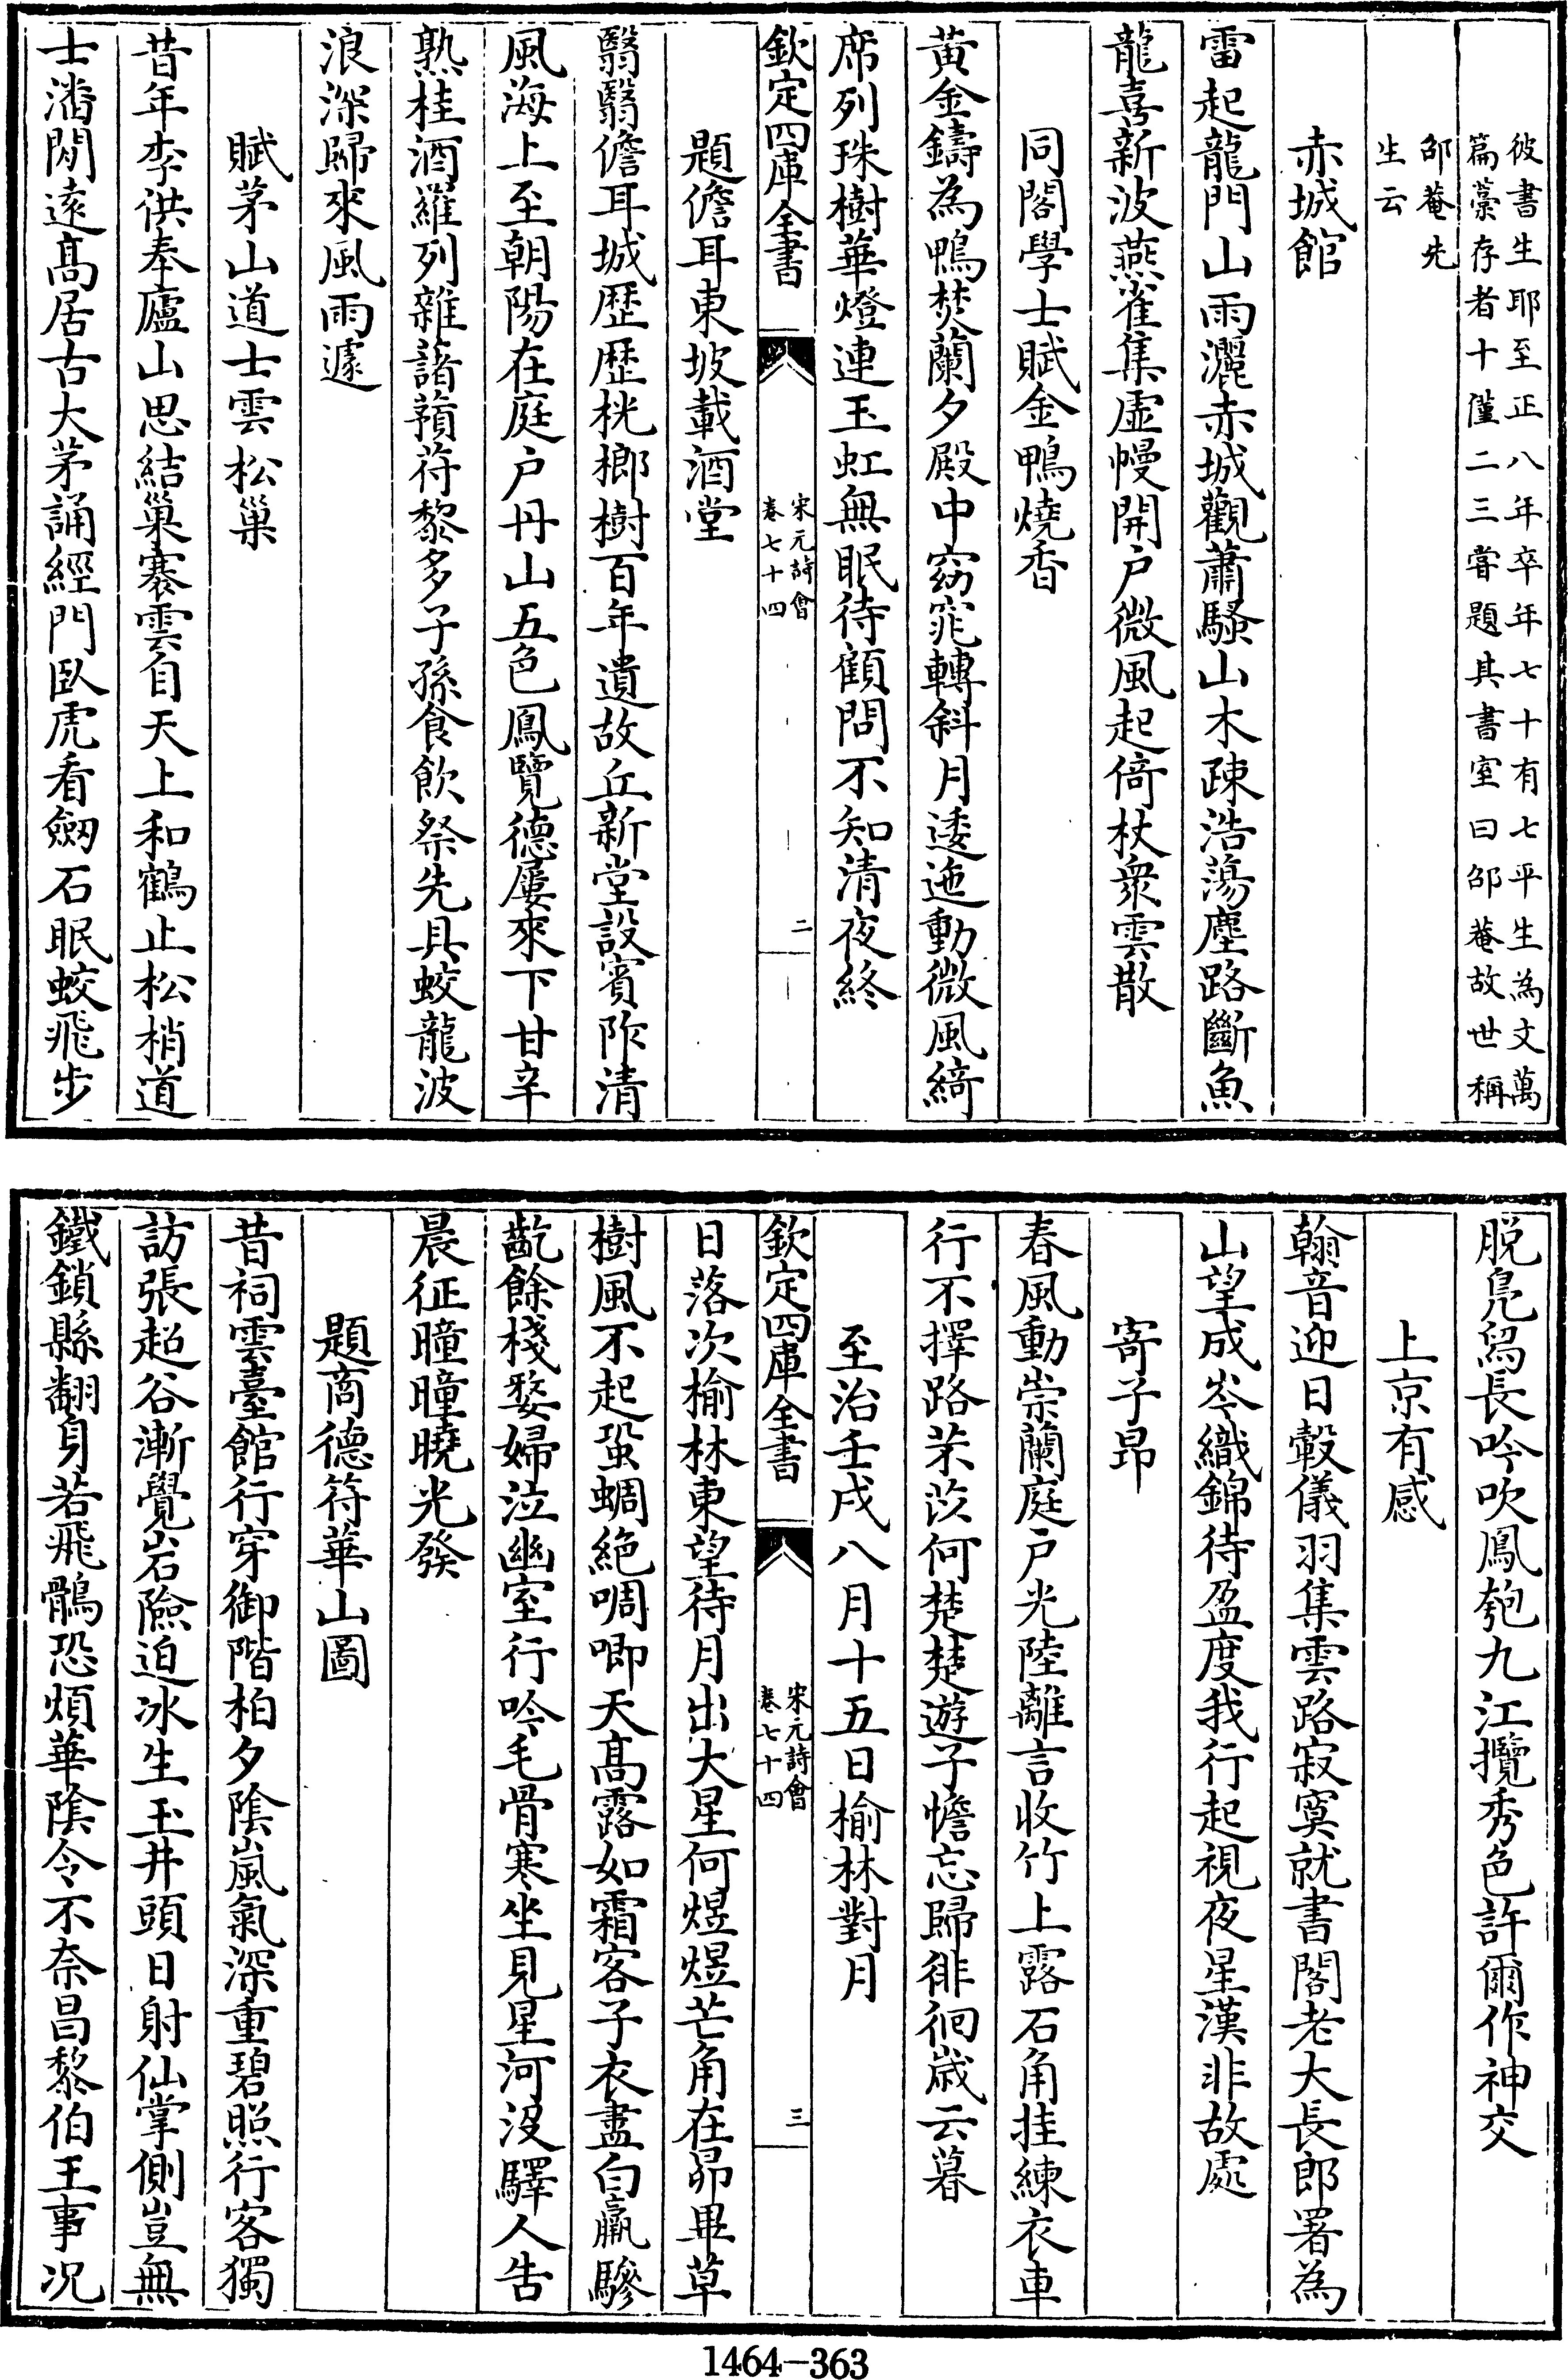 彼書生耶至正八年卒年七十有七平生為文萬
篇藁存者十僅二三嘗題其書室曰邵菴故世稱
邵菴先
生云
赤城館
雷起龍門山雨灑赤城觀蕭騷山木疎浩蕩塵路斷魚
龍喜新波燕雀集虛幔開戶微風起倚杖衆雲散
同閣學士賦金鴨燒香
黃金鑄為鴨焚蘭夕殿中窈窕轉斜月逶迤動微風綺
席列珠樹華燈連玉虹無眠待顧問不知清夜終
欽定四庫全書
宋元詩會
卷七十四
二
題儋耳東坡載酒堂
翳翳儋耳城歴歴桄榔樹百年遺故丘新堂設賓阼清
風海上至朝陽在庭户丹山五色鳳覽德屢來下甘辛
熟桂酒羅列雜諸蕷符黎多子孫食飲祭先具蛟龍波
浪深歸來風雨遽
賦茅山道士雲松巢
昔年李供奉廬山思結巢褰雲自天上和鶴止松梢道
士潘閒逺髙居古大茅誦經門臥虎看劒石眠蛟飛步
脱鳬舄長吟吹鳳匏九江攬秀色許爾作神交
上京有感
翰音迎日轂儀羽集雲路寂寞就書閣老大長郎署為
山望成岑織錦待盈度我行起視夜星漢非故處
寄子昂
春風動崇蘭庭户光陸離言收竹上露石角挂練衣車
行不擇路茱茨何楚楚遊子憺忘歸徘徊歲云暮
至治壬戌八月十五日榆林對月
欽定四庫全書
宋元詩會
卷七十四
三
日落次榆林東望待月出大星何煜煜芒角在昴畢草
樹風不起蛩蜩絶啁唧天髙露如霜客子衣盡白羸驂
齕餘棧嫠婦泣幽室行吟毛骨寒坐見星河沒驛人告
晨征曈曈曉光發
題商德符華山圖
昔祠雲臺館行穿御階柏夕隂嵐氣深重碧照行客獨
訪張超谷漸覺岩險迫冰生玉井頭日射仙掌側豈無
鐵鎖縣翻身若飛鶻恐煩華隂令不奈昌黎伯王事况
1464-363